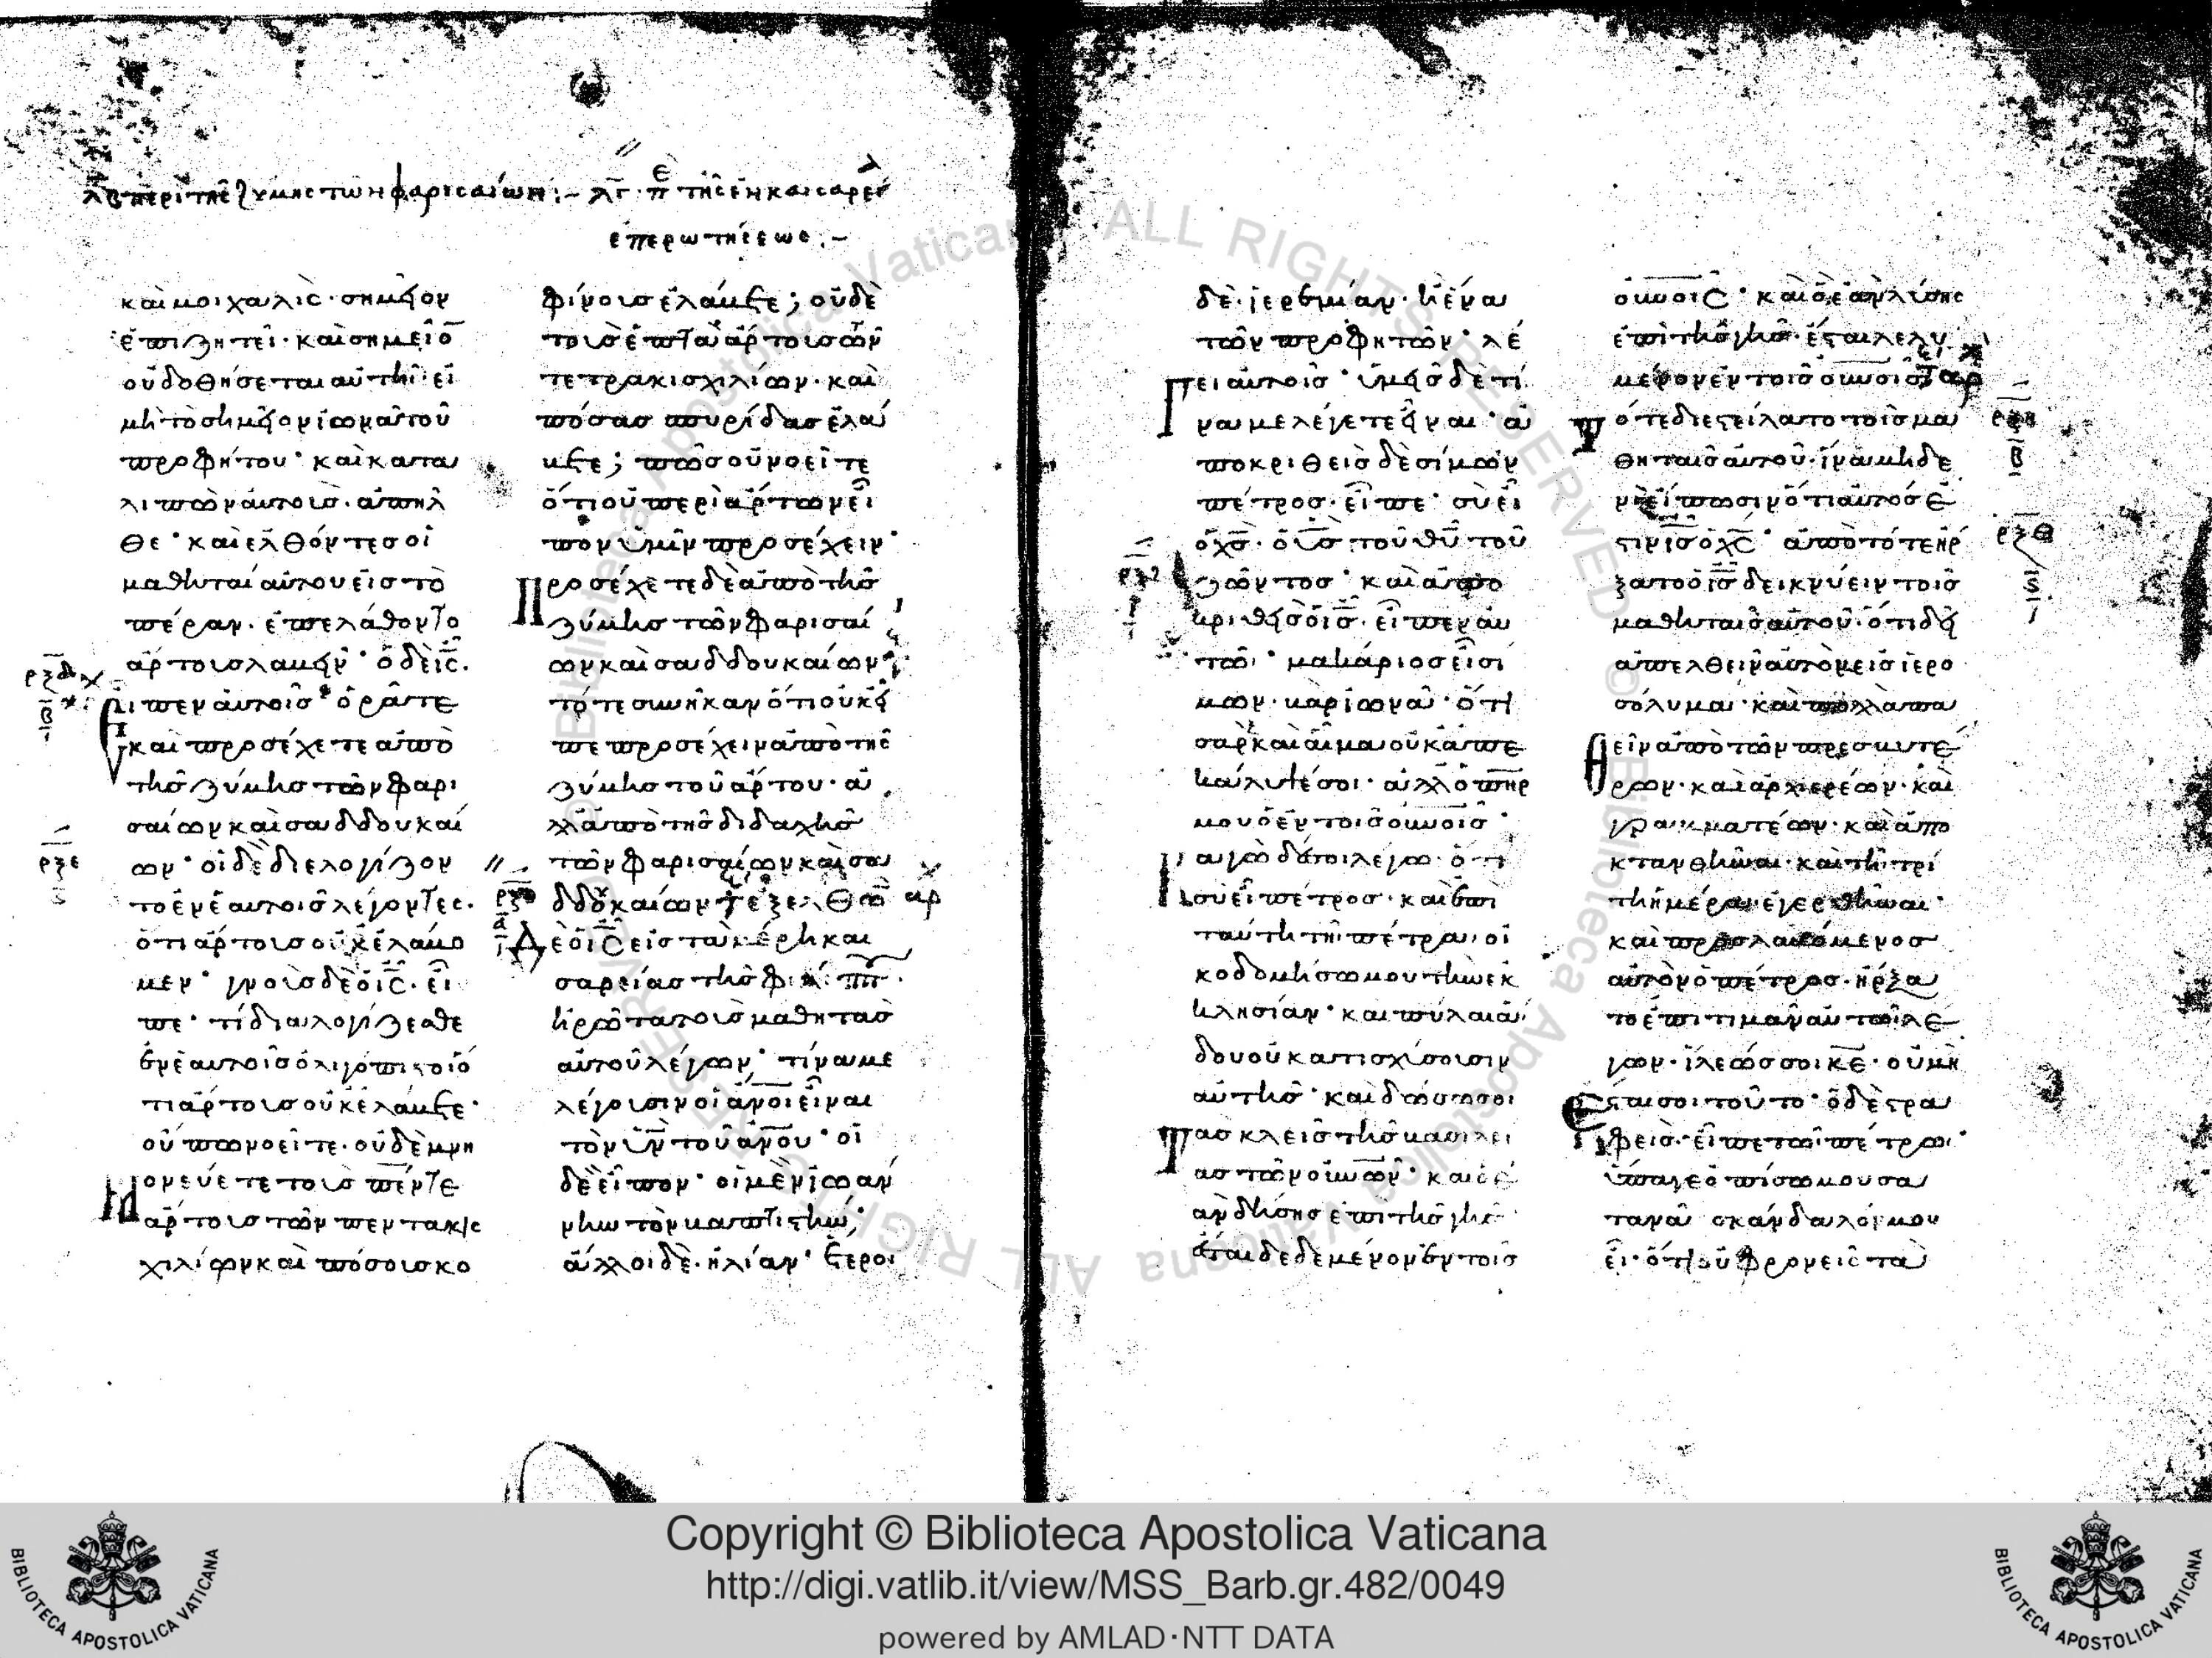 λβ περι της ζυμης των φαρισαιων :- λγ · π̅ε της εν καισαρεία
επερωτησεως :-
και μοιχαλὶς · σημεῖον
ἐπιζητεῖ · καὶ σημεῖο̅
οὐ δοθήσεται αὐτῆ · εἰ
μὴ τὸ σημεῖον ἰωνᾶ τοῦ
προφήτου · καὶ κατα
λιπὼν αὐτοὺς · ἀπῆλ
θε · καὶ ἐλθόντες οἱ
μαθηταί αὐτοῦ εἰς τὸ
πέραν · ἐπελάθοντο
ἄρτους λαβεῖν · ὁ δὲ ι̅ς̅ ·
ρξδ
β
εἶπεν αὐτοῖς · ὁρᾶτε
καὶ προσέχετε ἀπὸ
τῆς ζύμης τῶν φαρι
σαίων καὶ σαδδουκαί
ρξε
ς
ων · οἱ δὲ διελογίζον
το ἐν ἑαυτοῖς λέγοντες ·
ὅτι ἄρτους οὐκ ἐλάβο
μεν · γνοὺς δὲ ὁ ι̅ς̅ · εἶ
πε · τί διαλογίζεσθε
ἐν ἑαυτοῖς ὀλιγόπιστοι ὅ
τι ἄρτους οὐκ ἐλάβετε ·
οὔπω νοεῖτε · οὐδὲ μνη
μονεύετε τοὺς πέντε
ἄρτους τῶν πεντακις
χιλίων καὶ πόσους κο
φίνους ἐλάβετε ; οὐδὲ
τοὺς ἑπτὰ ἄρτους τῶν
τετρακισχιλίων · καὶ
πόσας σπυρίδας ἐλά
βετε ; πῶς οὐ νοεῖτε
ὅτι οὐ περὶ ἄρτων εἶ
πον ὑμῖν προσέχειν ·
Προσέχετε δὲ ἀπὸ τῆς
ζύμης τῶν φαρισαί
ων καὶ σαδδουκαίων ·
τότε συνῆκαν ὅτι οὐκ εἶ
πε προσέχειν ἀπὸ τῆς
ζύμης τοῦ ἄρτου · ἀ
λλὰ ἀπὸ τῆς διδαχῆς
τῶν φαρισαίων καὶ σα
δδουκαίων ἐξελθὼν
δὲ ὁ ι̅ς̅ εἰς τὰ μέρη και
σαρείας τῆς φιλίππ
ἠρώτα τοὺς μαθητὰς
αὐτοῦ λέγων · τίνα με
λέγουσιν οἱ α̅ν̅ο̅ι̅ εἶναι
τὸν υ̅ν̅ τοῦ α̅ν̅ο̅υ̅ · οἱ
δὲ εἶπον · οἱ μὲν ἰωάν
νην τὸν βαπτιστὴν ·
ἄλλοι δὲ · ἠλίαν · ἕτεροι
δὲ · ἱερεμίαν · ἢ ἕνα
τῶν προφητῶν · λέ
γει αὐτοῖς · ὑμεῖς δὲ τί
να με λέγετε εἶναι · ἀ
ποκριθεὶς δὲ σίμων
πέτρος · εἶπε · σὺ εἶ
ὁ χ̅ς̅ · ὁ υ̅ς̅ τοῦ θ̅υ̅ τοῦ
ζῶντος · καὶ ἀπο
κριθεὶς ὁ ι̅ς̅ · εἶπεν αὐ
τῶ · μακάριος εἶ σι
μων · βαριωνᾶ · ὅτι
σὰρκαὶ αἷμα οὐκ ἀπε
κάλυψέ σοι · ἀλλ' ὁ π̅η̅ρ̅
μου ὁ ἐν τοῖς ο̅υ̅ν̅ο̅ι̅ς̅ ·
καγὼ δέ σοι λέγω · ὅτι
σὺ εἶ πέτρος · καὶ ἐπὶ
ταύτη τῆ πέτρα · οἰ
κοδομήσω μου τὴν ἐκ
κλησίαν · καὶ πύλαι ἅ
δου οὐ κατισχύσουσιν
αὐτῆς · καὶ δώσω σοι
τὰς κλεῖς τῆς βασιλεί
ας τῶν ο̅υ̅ν̅ω̅ν̅ · καὶ ὃ
ἂν δήσης ἐπὶ τῆς γῆς
ἔσται δεδεμένον ἐν τοῖς
ο̅υ̅ν̅ο̅ι̅ς̅ · καὶ ὃ ἐὰν λύσης
ἐπὶ τῆς γῆς · ἔσται λελυ
μένον ἐν τοῖς ο̅υ̅ν̅ο̅ι̅ς̅
ρξη
β
Τότε διεστείλατο τοῖς μα
θηταῖς αὐτοῦ · ἵνα μηδε
νὶ εἴπωσιν ὅτι αὐτός ἐ
ρξθ
ς
στιν ι̅ς̅ ὁ χ̅ς̅ · ἀπὸ τότε ἤρ
ξατο ὁ ι̅ς̅ δεικνύειν τοῖς
μαθηταῖς αὐτοῦ · ὅτι δεῖ
ἀπελθεῖν αὐτὸν εἰς ἱερο
σόλυμα · καὶ πολλὰ πα
θεῖν ἀπὸ τῶν πρεσβυτέ
ρων · καὶ ἀρχιερέων · καὶ
γραμματέων · καὶ ἀπο
κτανθῆναι · καὶ τῆ τρί
τη ἡμέρα ἐγερθῆναι ·
καὶ προσλαβόμενος
αὐτὸν ὁ πέτρος · ἤρξα
το ἐπιτιμᾶν αὐτῶ λέ
γων · ἵλεώς σοι κ̅ε̅ · οὐ μὴ
ἔσται σοι τοῦτο · ὁ δὲ στρα
φεὶς · εἶπε τῶ πέτρω ·
ὕπαγε ὀπίσω μου σα
τανᾶ σκάνδαλόν μου
εἶ · ὅτι οὐ φρονεῖς τὰ
Copyright © Biblioteca Apostolica Vaticana
http://digi.vatlib.it/view/MSS_Barb.gr.482/0049
powered by AMLAD·NTT DATA
BIBLIOTECA APOSTOLICA VATICANA
BIBLIOTECA APOSTOLICA VATICANA
© Biblioteca Apostolica Vaticana ALL RIGHTS RESERVED
© Biblioteca Apostolica Vaticana ALL RIGHTS RESERVED